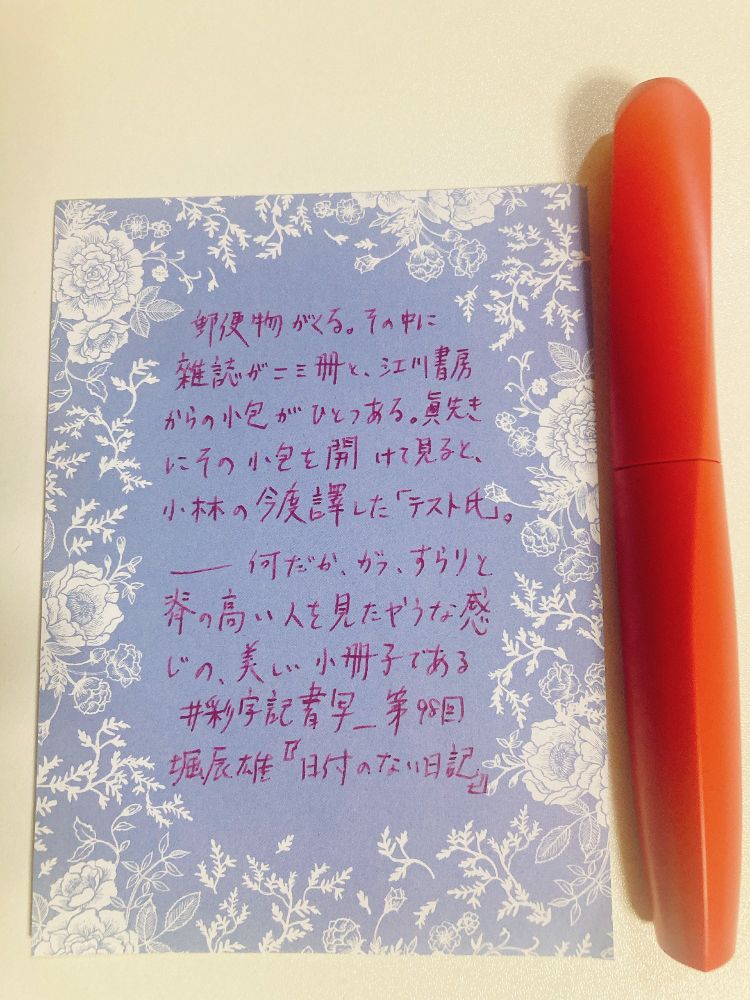 郵便物がくる。その中に
雜誌が二三冊と、江川書房
からの小包がひとつある。眞先き
にその小包を開けて見ると、
小林の今度譯した「テスト氏」。
―― 何だか、かう、すらりと
脊の高い人を見たやうな感
じの、美しい小冊子である
#彩字記書写_第98回
堀辰雄『日付のない日記』